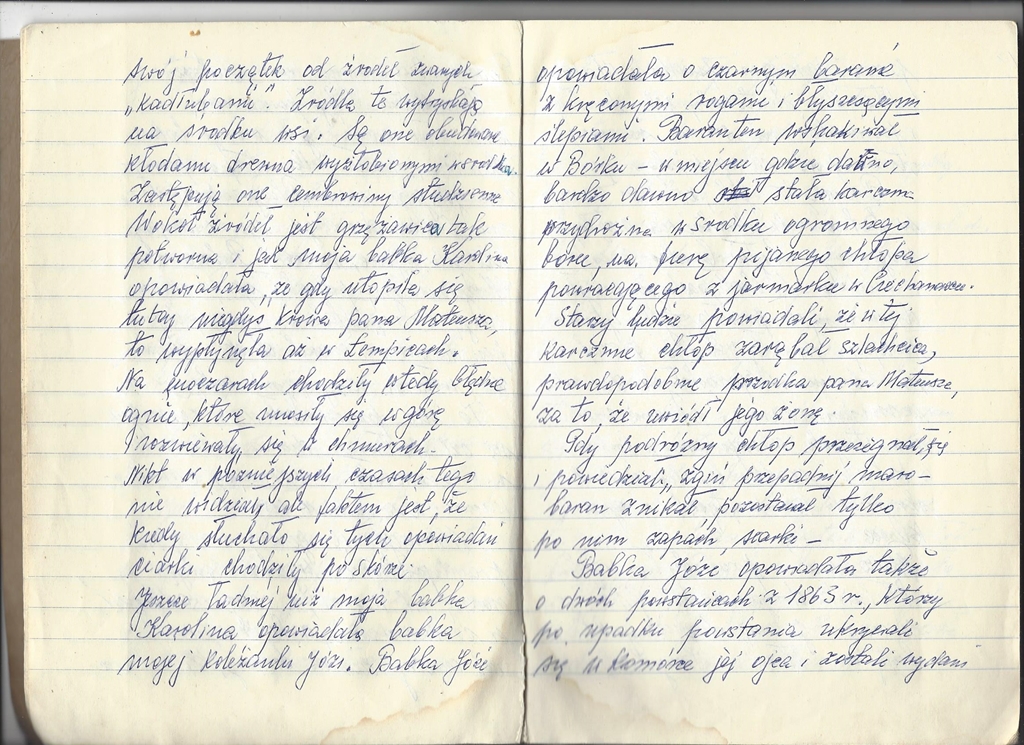 swój początek od źródeł zwanych
„kadłubami". Źródła te wytryskają
na środku wsi. Są one obudowane
kłodami drewna wyżłobionymi w środku.
Zastępują one cembrowiny studzienne
Wokół źródeł jest grzęzawica tak
potworna i jak moja babka Karolina
opowiadała, że gdy utopiła się
tutaj niegdyś krowa pana Mateusza,
to wypłynęła aż w Łempicach.
Na moczarach chodziły wtedy błędne
ognie, które unosiły się w górę
i rozwiewały się w chmurach.
Nikt w późniejszych czasach tego
nie widział, ale faktem jest, że
kiedy słuchało się tych opowiadań
ciarki chodziły po skórze.
Jeszcze ładniej niż moja babka
Karolina opowiadała babka
mojej koleżanki Józi. Babka Józi
opowiadała o czarnym baranie
z kręconymi rogami i błyszczącymi
ślepiami. Baran ten wskakiwał
w Borku – w miejscu gdzie dawno,
bardzo dawno stała karczma
przydrożna w środku ogromnego
boru, na furę pijanego chłopa
powracającego z jarmarku w Ciechanowcu.
Starzy ludzie powiadali, że w tej
karczmie chłop zarąbał szlachcica,
prawdopodobnie przodka pana Mateusza,
za to, że uwiódł jego żonę.
Gdy podróżny chłop przeżegnał się
i powiedział „zgiń przepadnij maro –
baran znikał, pozostawał tylko
po nim zapach siarki –
Babka Józi opowiadała także
o dwóch powstańcach z 1863 r., którzy
po upadku powstania ukrywali
się w komórce jej ojca i zostali wydani